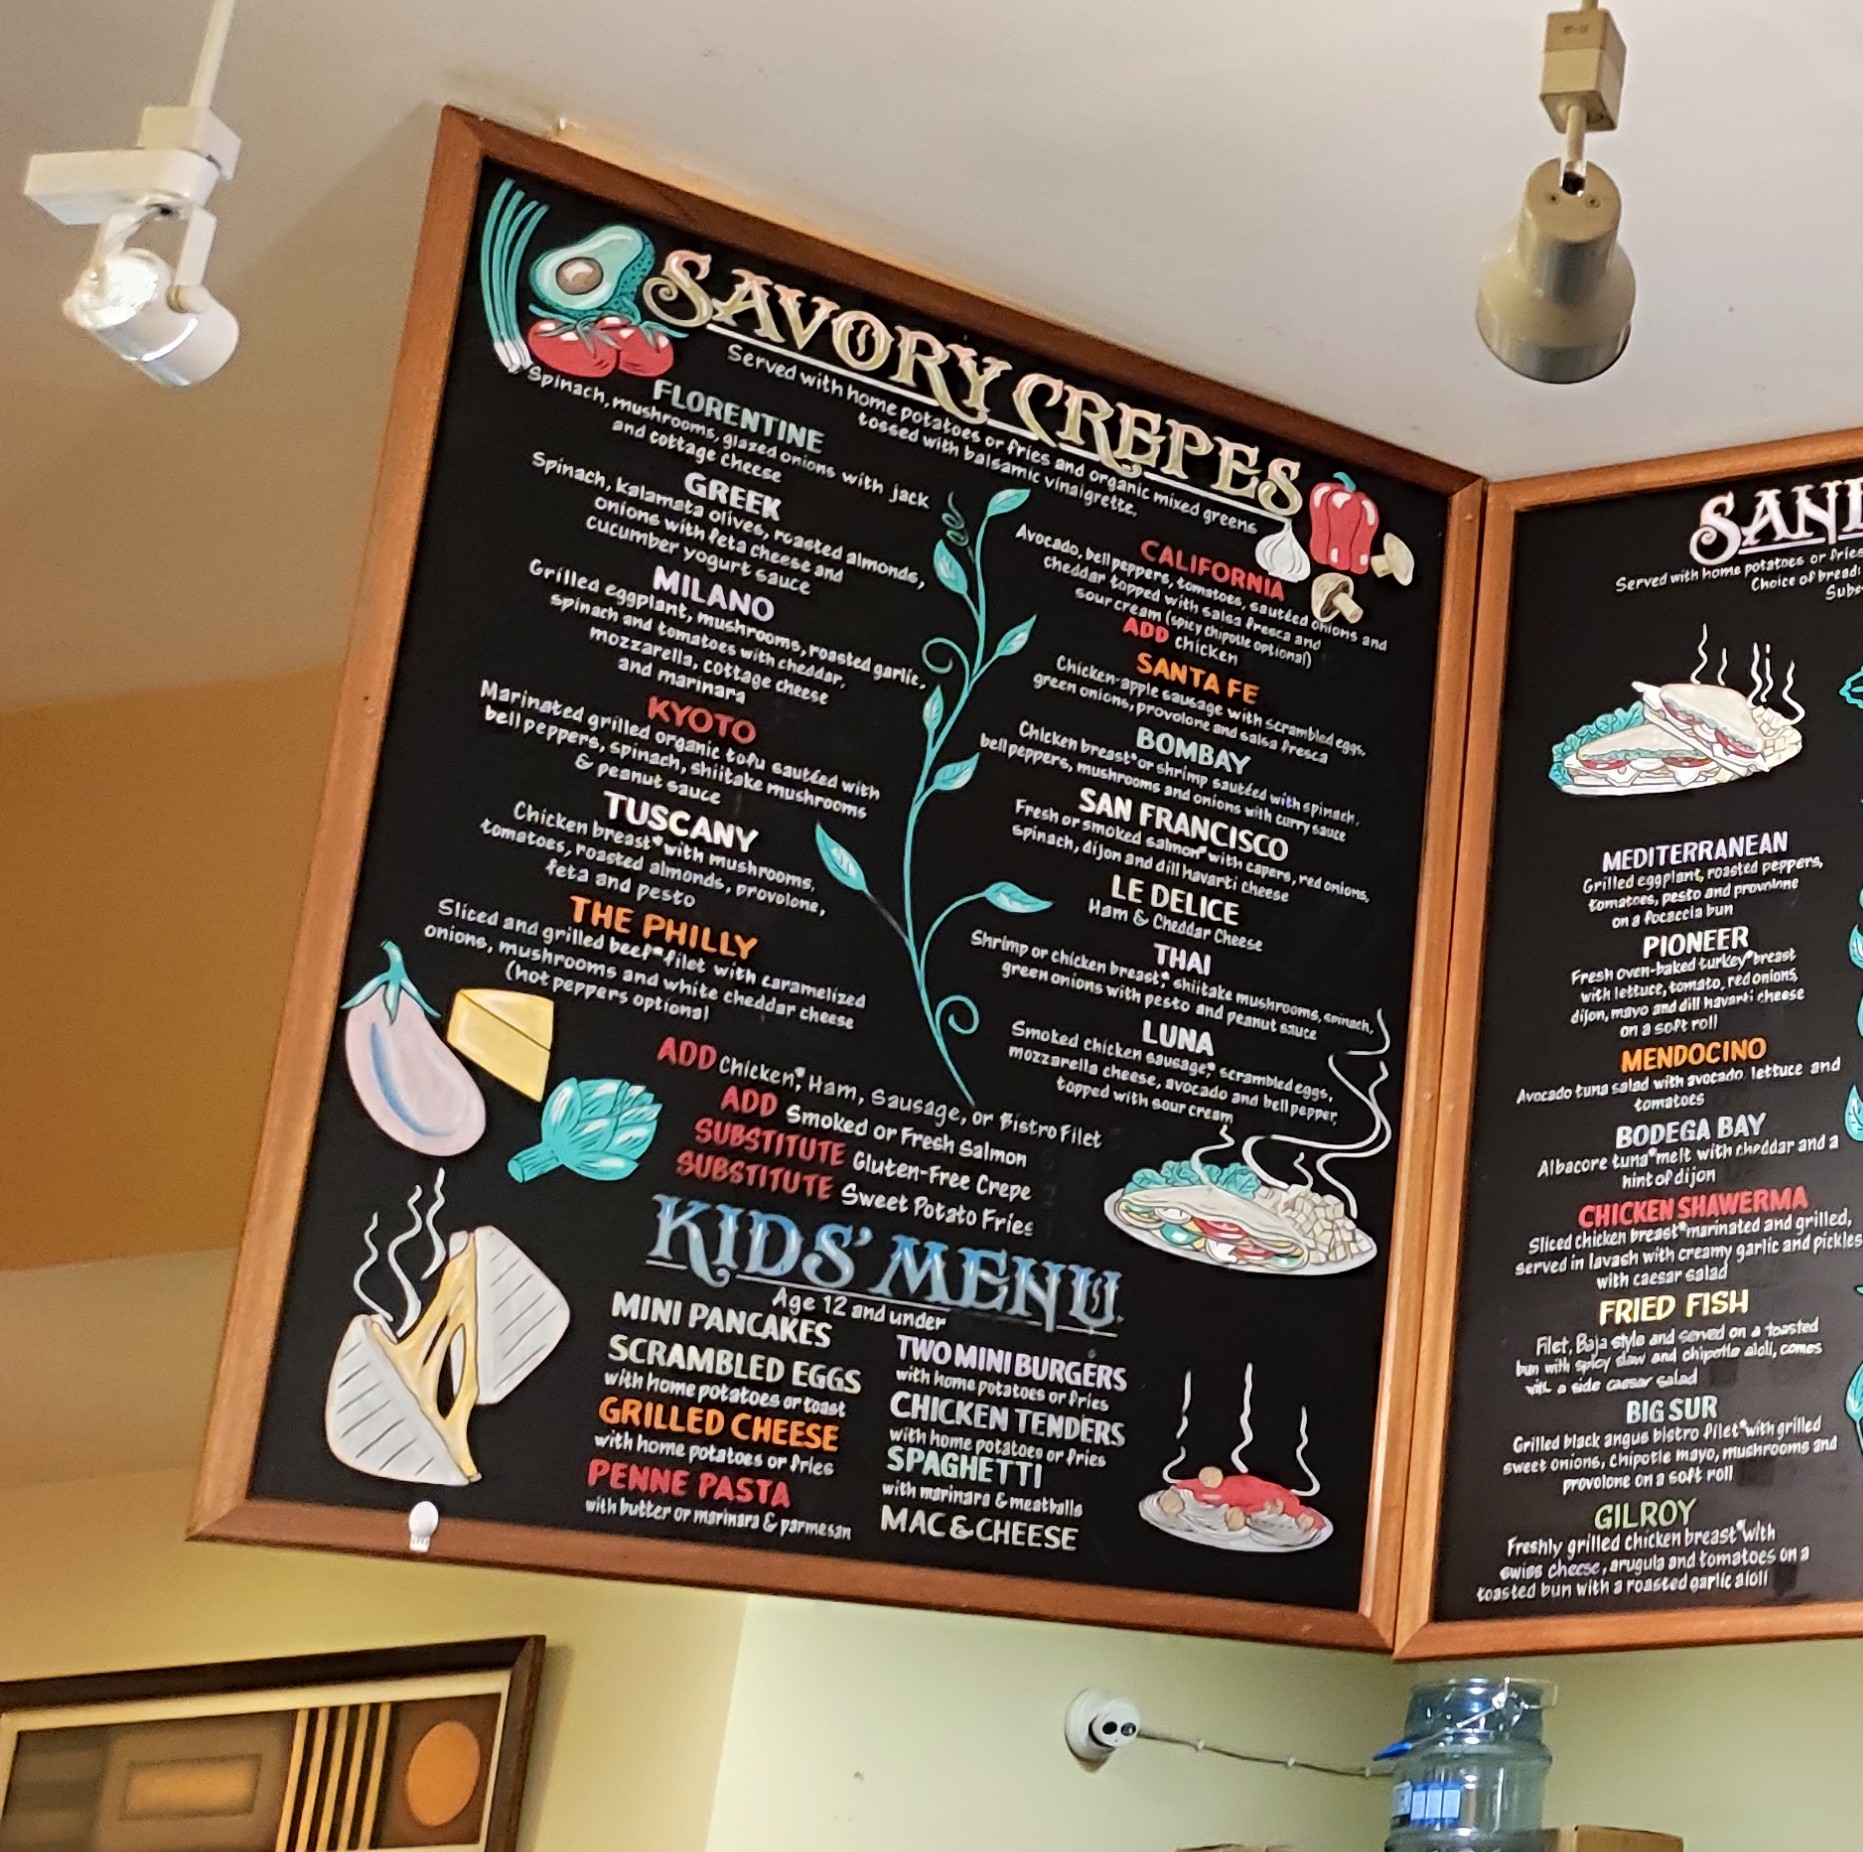 SAVORY CREPES
Served with home potatoes or fries and organic mixed greens
tossed with balsamic vinaigrette.
FLORENTINE
Spinach, mushrooms, glazed onions with jack
and cottage cheese
GREEK
Spinach, kalamata olives, roasted almonds,
onions with feta cheese and
cucumber yogurt sauce
MILANO
Grilled eggplant, mushrooms, roasted garlic,
spinach and tomatoes with cheddar,
mozzarella, cottage cheese
and marinara
KYOTO
Marinated grilled organic tofu sautéed with
bell peppers, spinach, shiitake mushrooms
& peanut sauce
TUSCANY
Chicken breast* with mushrooms,
tomatoes, roasted almonds, provolone,
feta and pesto
THE PHILLY
Sliced and grilled beef* filet with caramelized
onions, mushrooms and white cheddar cheese
(hot peppers optional)
CALIFORNIA
Avocado, bell peppers, tomatoes, sautéed onions and
cheddar topped with salsa fresca and
sour cream (spicy chipotle optional)
ADD chicken
SANTA FE
Chicken-apple sausage with scrambled eggs,
green onions, provolone and salsa fresca
BOMBAY
Chicken breast* or shrimp sautéed with spinach,
bell peppers, mushrooms and onions with curry sauce
SAN FRANCISCO
Fresh or smoked salmon* with capers, red onions,
spinach, dijon and dill havarti cheese
LE DELICE
Ham & Cheddar Cheese
THAI
Shrimp or chicken breast*, shiitake mushrooms, spinach,
green onions with pesto and peanut sauce
LUNA
Smoked chicken sausage*, scrambled eggs,
mozzarella cheese, avocado and bell pepper,
topped with sour cream
ADD Chicken*, Ham, Sausage, or Bistro Filet
ADD Smoked or Fresh Salmon
SUBSTITUTE Gluten-Free Crepe
SUBSTITUTE Sweet Potato Fries
KIDS' MENU
Age 12 and under
MINI PANCAKES
SCRAMBLED EGGS
with home potatoes or toast
GRILLED CHEESE
with home potatoes or fries
PENNE PASTA
with butter or marinara & parmesan
TWO MINI BURGERS
with home potatoes or fries
CHICKEN TENDERS
with home potatoes or fries
SPAGHETTI
with marinara & meatballs
MAC & CHEESE
SAN
Served with home potatoes or fries
Choice of bread:
Subs
MEDITERRANEAN
Grilled eggplant, roasted peppers,
tomatoes, pesto and provolone
on a focaccia bun
PIONEER
Fresh oven-baked turkey* breast
with lettuce, tomato, red onions,
dijon, mayo and dill havarti cheese
on a soft roll
MENDOCINO
Avocado tuna salad with avocado, lettuce and
tomatoes
BODEGA BAY
Albacore tuna* melt with cheddar and a
hint of dijon
CHICKEN SHAWERMA
Sliced chicken breast* marinated and grilled,
served in lavash with creamy garlic and pickles
with caesar salad
FRIED FISH
Filet, Baja style and served on a toasted
bun with spicy slaw and chipotle aioli, comes
with a side caesar salad
BIG SUR
Grilled black angus bistro filet* with grilled
sweet onions, chipotle mayo, mushrooms and
provolone on a soft roll
GILROY
Freshly grilled chicken breast* with
swiss cheese, arugula and tomatoes on a
toasted bun with a roasted garlic aioli